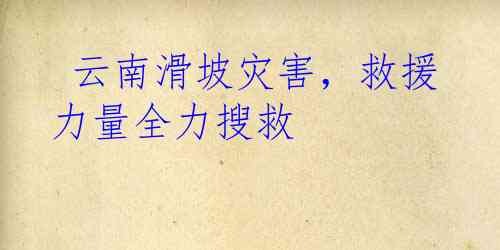 云南滑坡灾害，救援
力量全力搜救